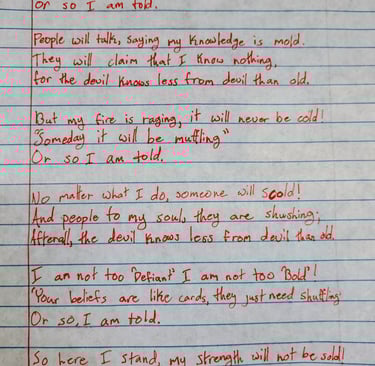 Or so I am told.
People will talk, saying my knowledge is mold.
They will claim that I know nothing,
for the devil knows less from devil than old.
But my fire is raging, it will never be cold!
"Someday it will be muffling"
Or so I am told.
No matter what I do, someone will scold!
And people to my soul, they are shushing;
Afterall, the devil knows less from devil than old.
I am not too "Defiant" I am not too "Bold"!
"Your beliefs are like cards, they just need shuffling"
Or so, I am told.
So here I stand, my strength will not be sold!